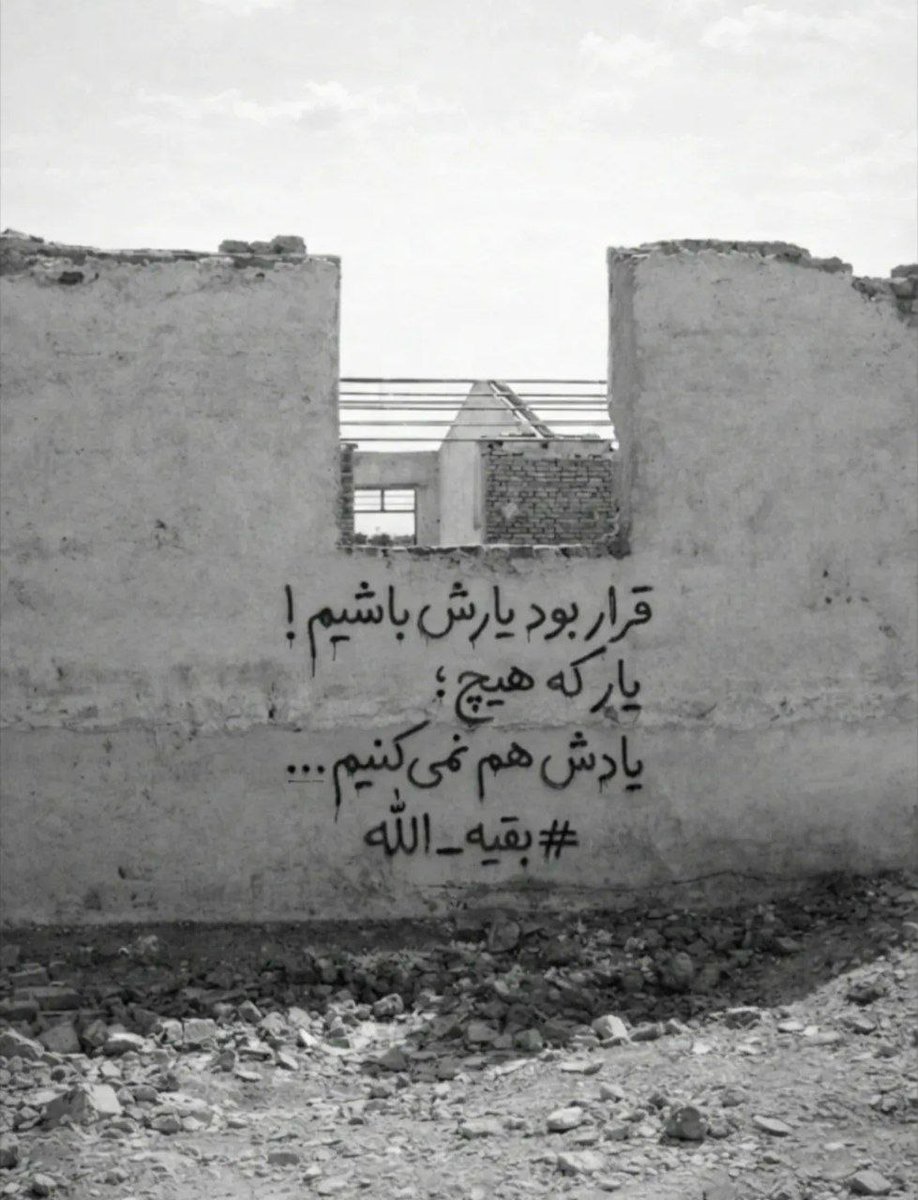 قرار بود یارش باشیم!
یار که هیچ؛
یادش هم نمی‌کنیم...
#بقیه_الله